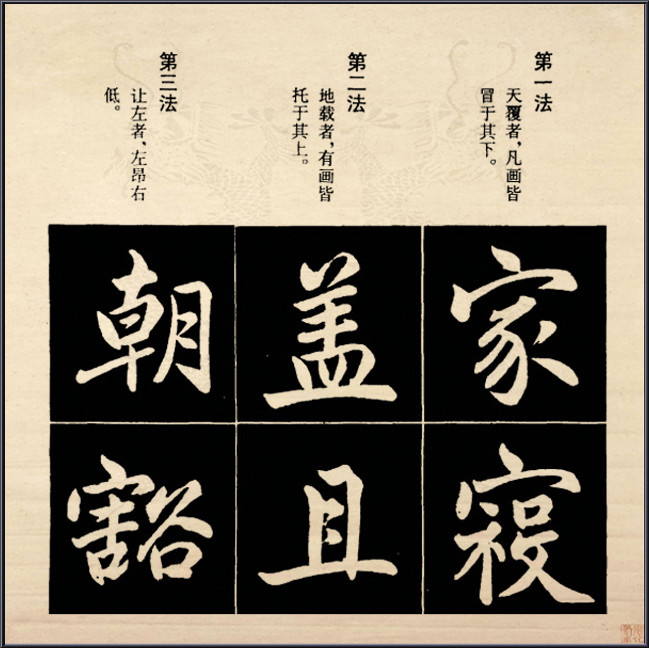 第一法
天覆者,凡画皆
冒于其下。
第二法
地载者,有画皆
托于其上。
第三法
让左者、左昂右
低。
家
盖
且
朝
豁